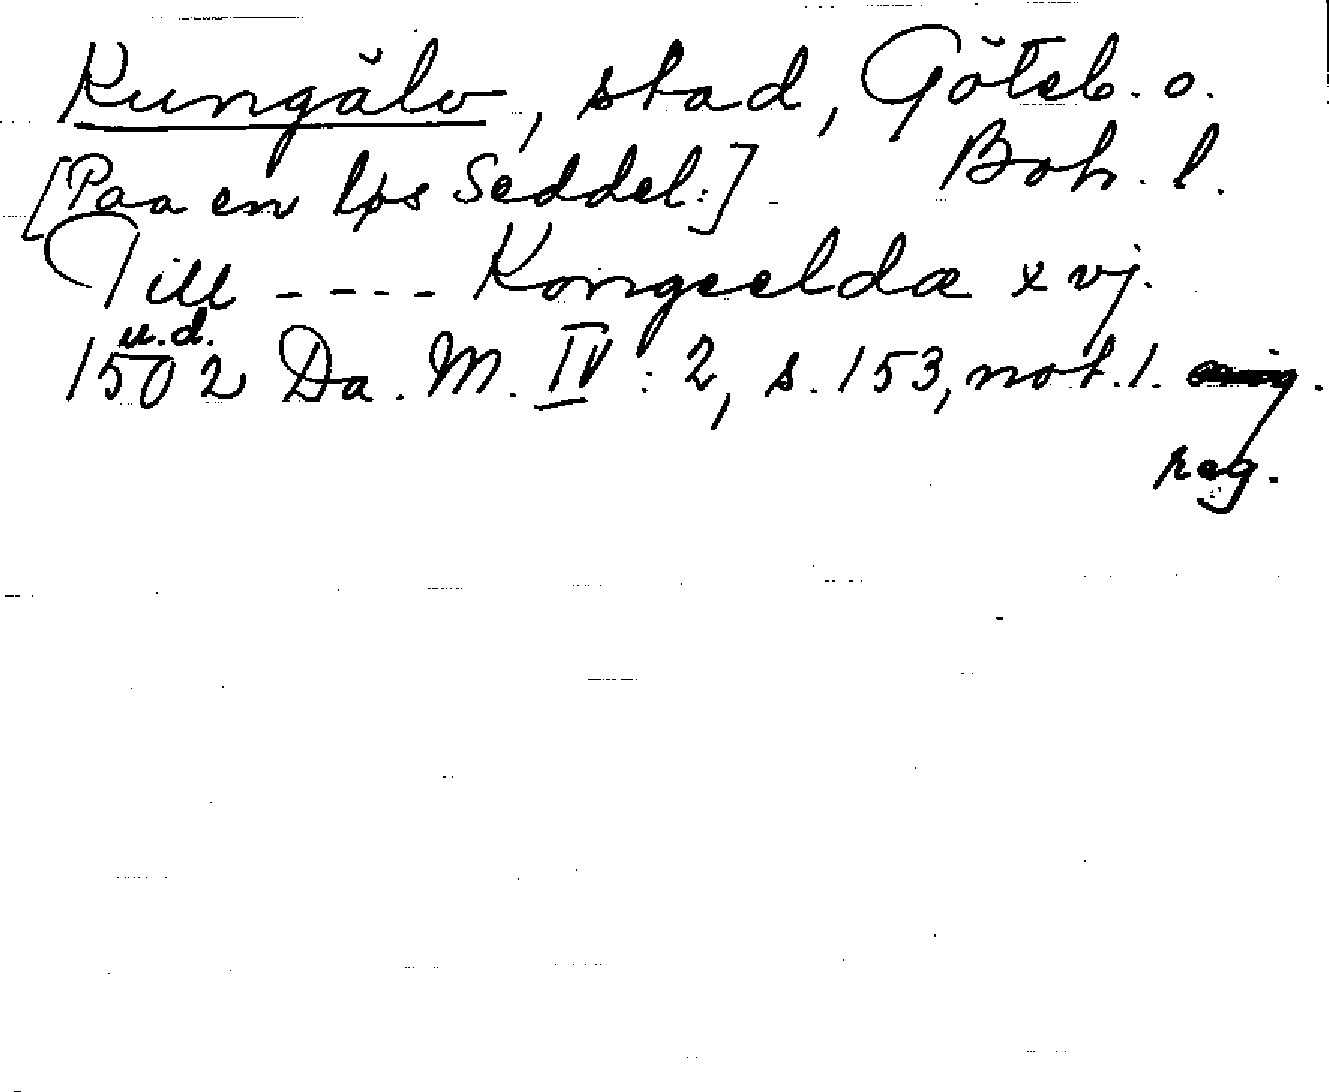 Kungälv, stad, Göteb. o.
Boh. l.
[Paa en løs Seddel:]
Till ---- Kongeelda xvj.
u.d.
1502 Da. M. IV: 2, s. 153, not. 1.
reg.